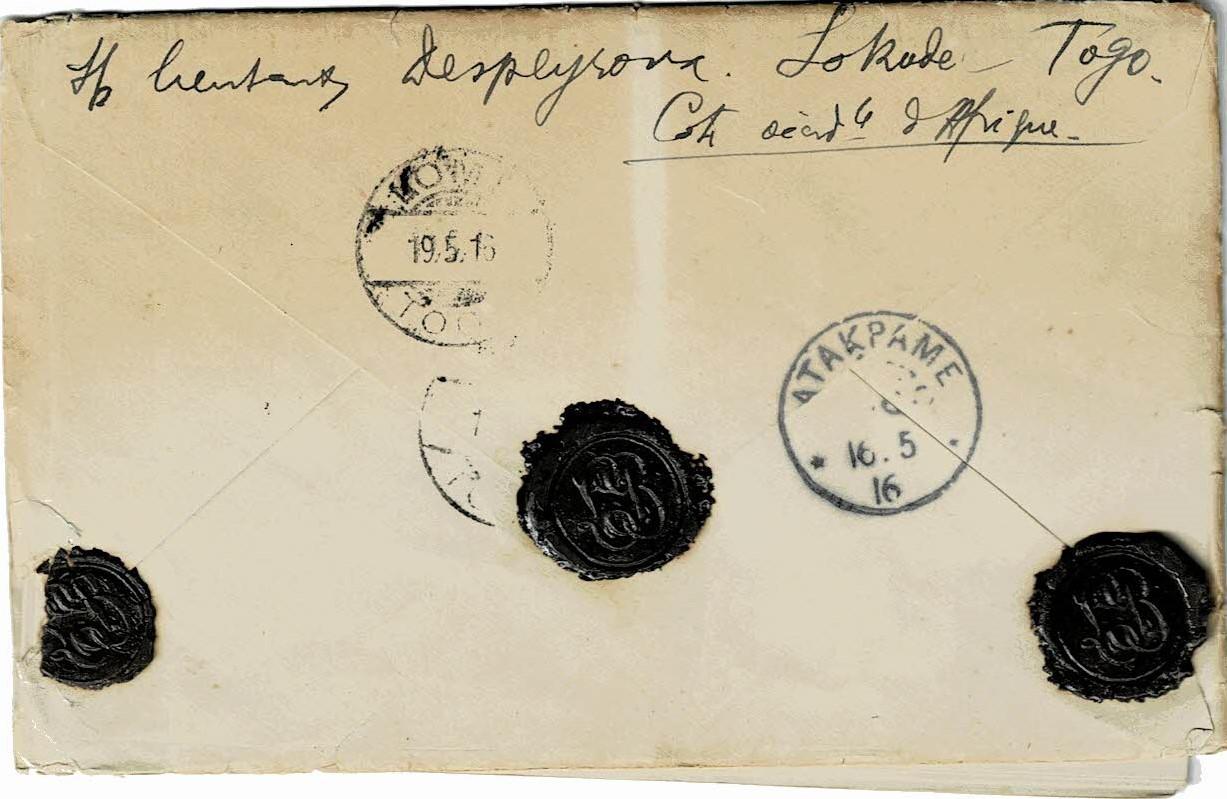 Lieutenant Despeyroux. Sokode – Togo.
Cote occid le d'Afrique –
LOME
19.5.16
TOGO
ATAKPAME
16.5
16